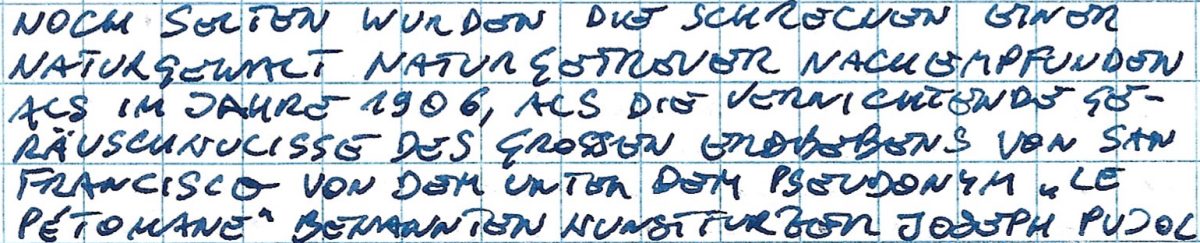 NOCH SELTEN WURDEN DIE SCHRECKEN EINER
NATURGEWALT NATURGETREUER NACHEMPFUNDEN
ALS IM JAHRE 1906, ALS DIE VERNICHTENDE GE-
RÄUSCHKULISSE DES GROSSEN ERDBEBENS VON SAN
FRANCISCO VON DEM UNTER DEM PSEUDONYM „LE
PÉTOMANE“ BEKANNTEN KUNSTFURZER JOSEPH PUJOL